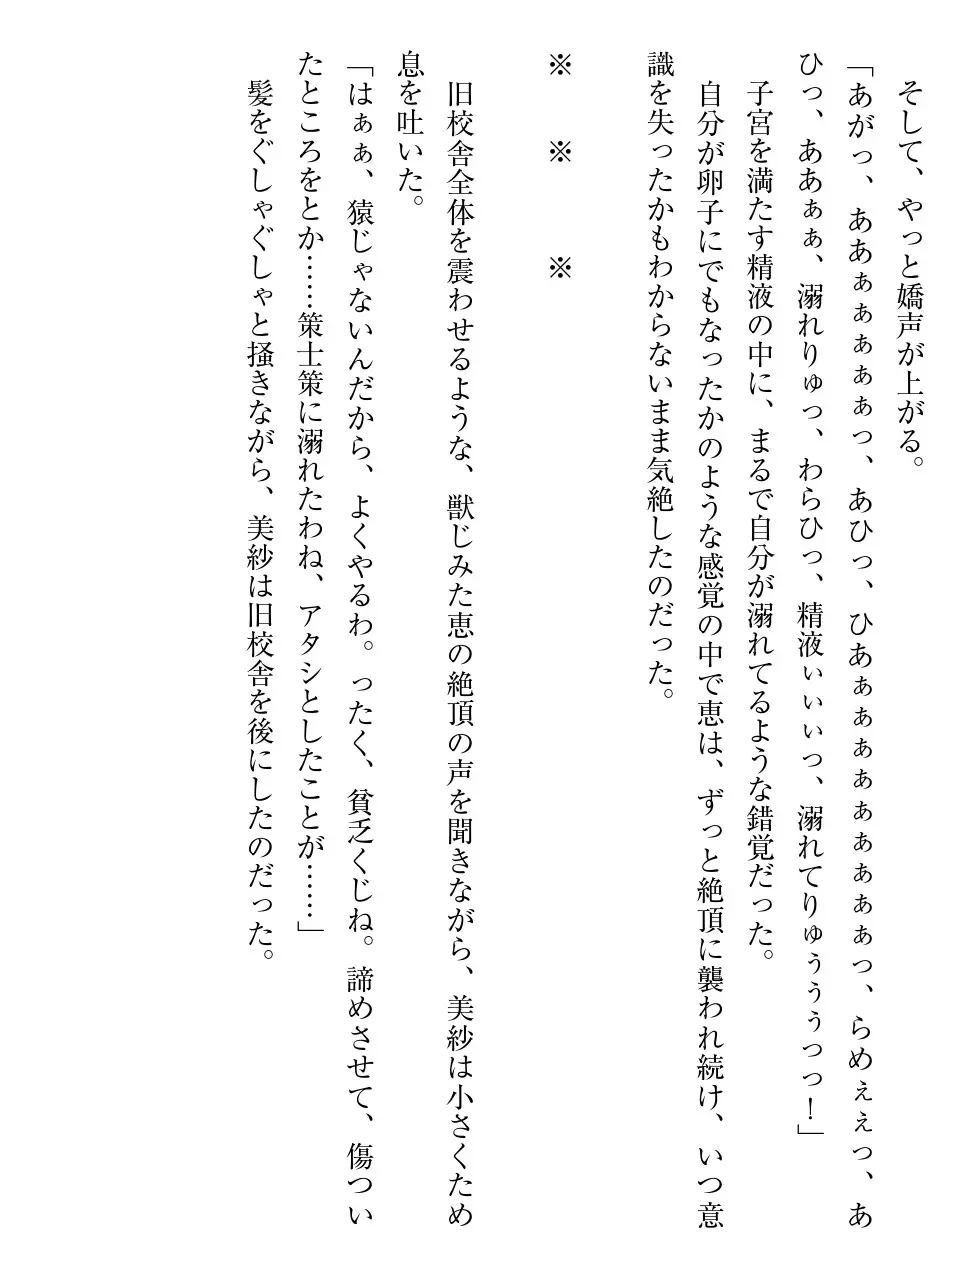 そして、やっと嬌声が上がる。
「あがっ、ああぁぁぁぁぁっ、あひっ、ひあぁぁぁぁぁぁぁぁぁっ、らめぇぇっ、あ
ひっ、ああぁぁ、溺れりゅっ、わらひっ、精液ぃぃぃっ、溺れてりゅぅぅぅっっ！」
子宮を満たす精液の中に、まるで自分が溺れてるような錯覚だった。
自分が卵子にでもなったかのような感覚の中で恵は、ずっと絶頂に襲われ続け、いつ意
識を失ったかもわからないまま気絶したのだった。
※　※　※
旧校舎全体を震わせるような、獣じみた恵の絶頂の声を聞きながら、美紗は小さくため
息を吐いた。
「はぁぁ、猿じゃないんだから、よくやるわ。ったく、貧乏くじね。諦めさせて、傷つい
たところをとか……策士策に溺れたわね、アタシとしたことが……」
髪をぐしゃぐしゃと掻きながら、美紗は旧校舎を後にしたのだった。